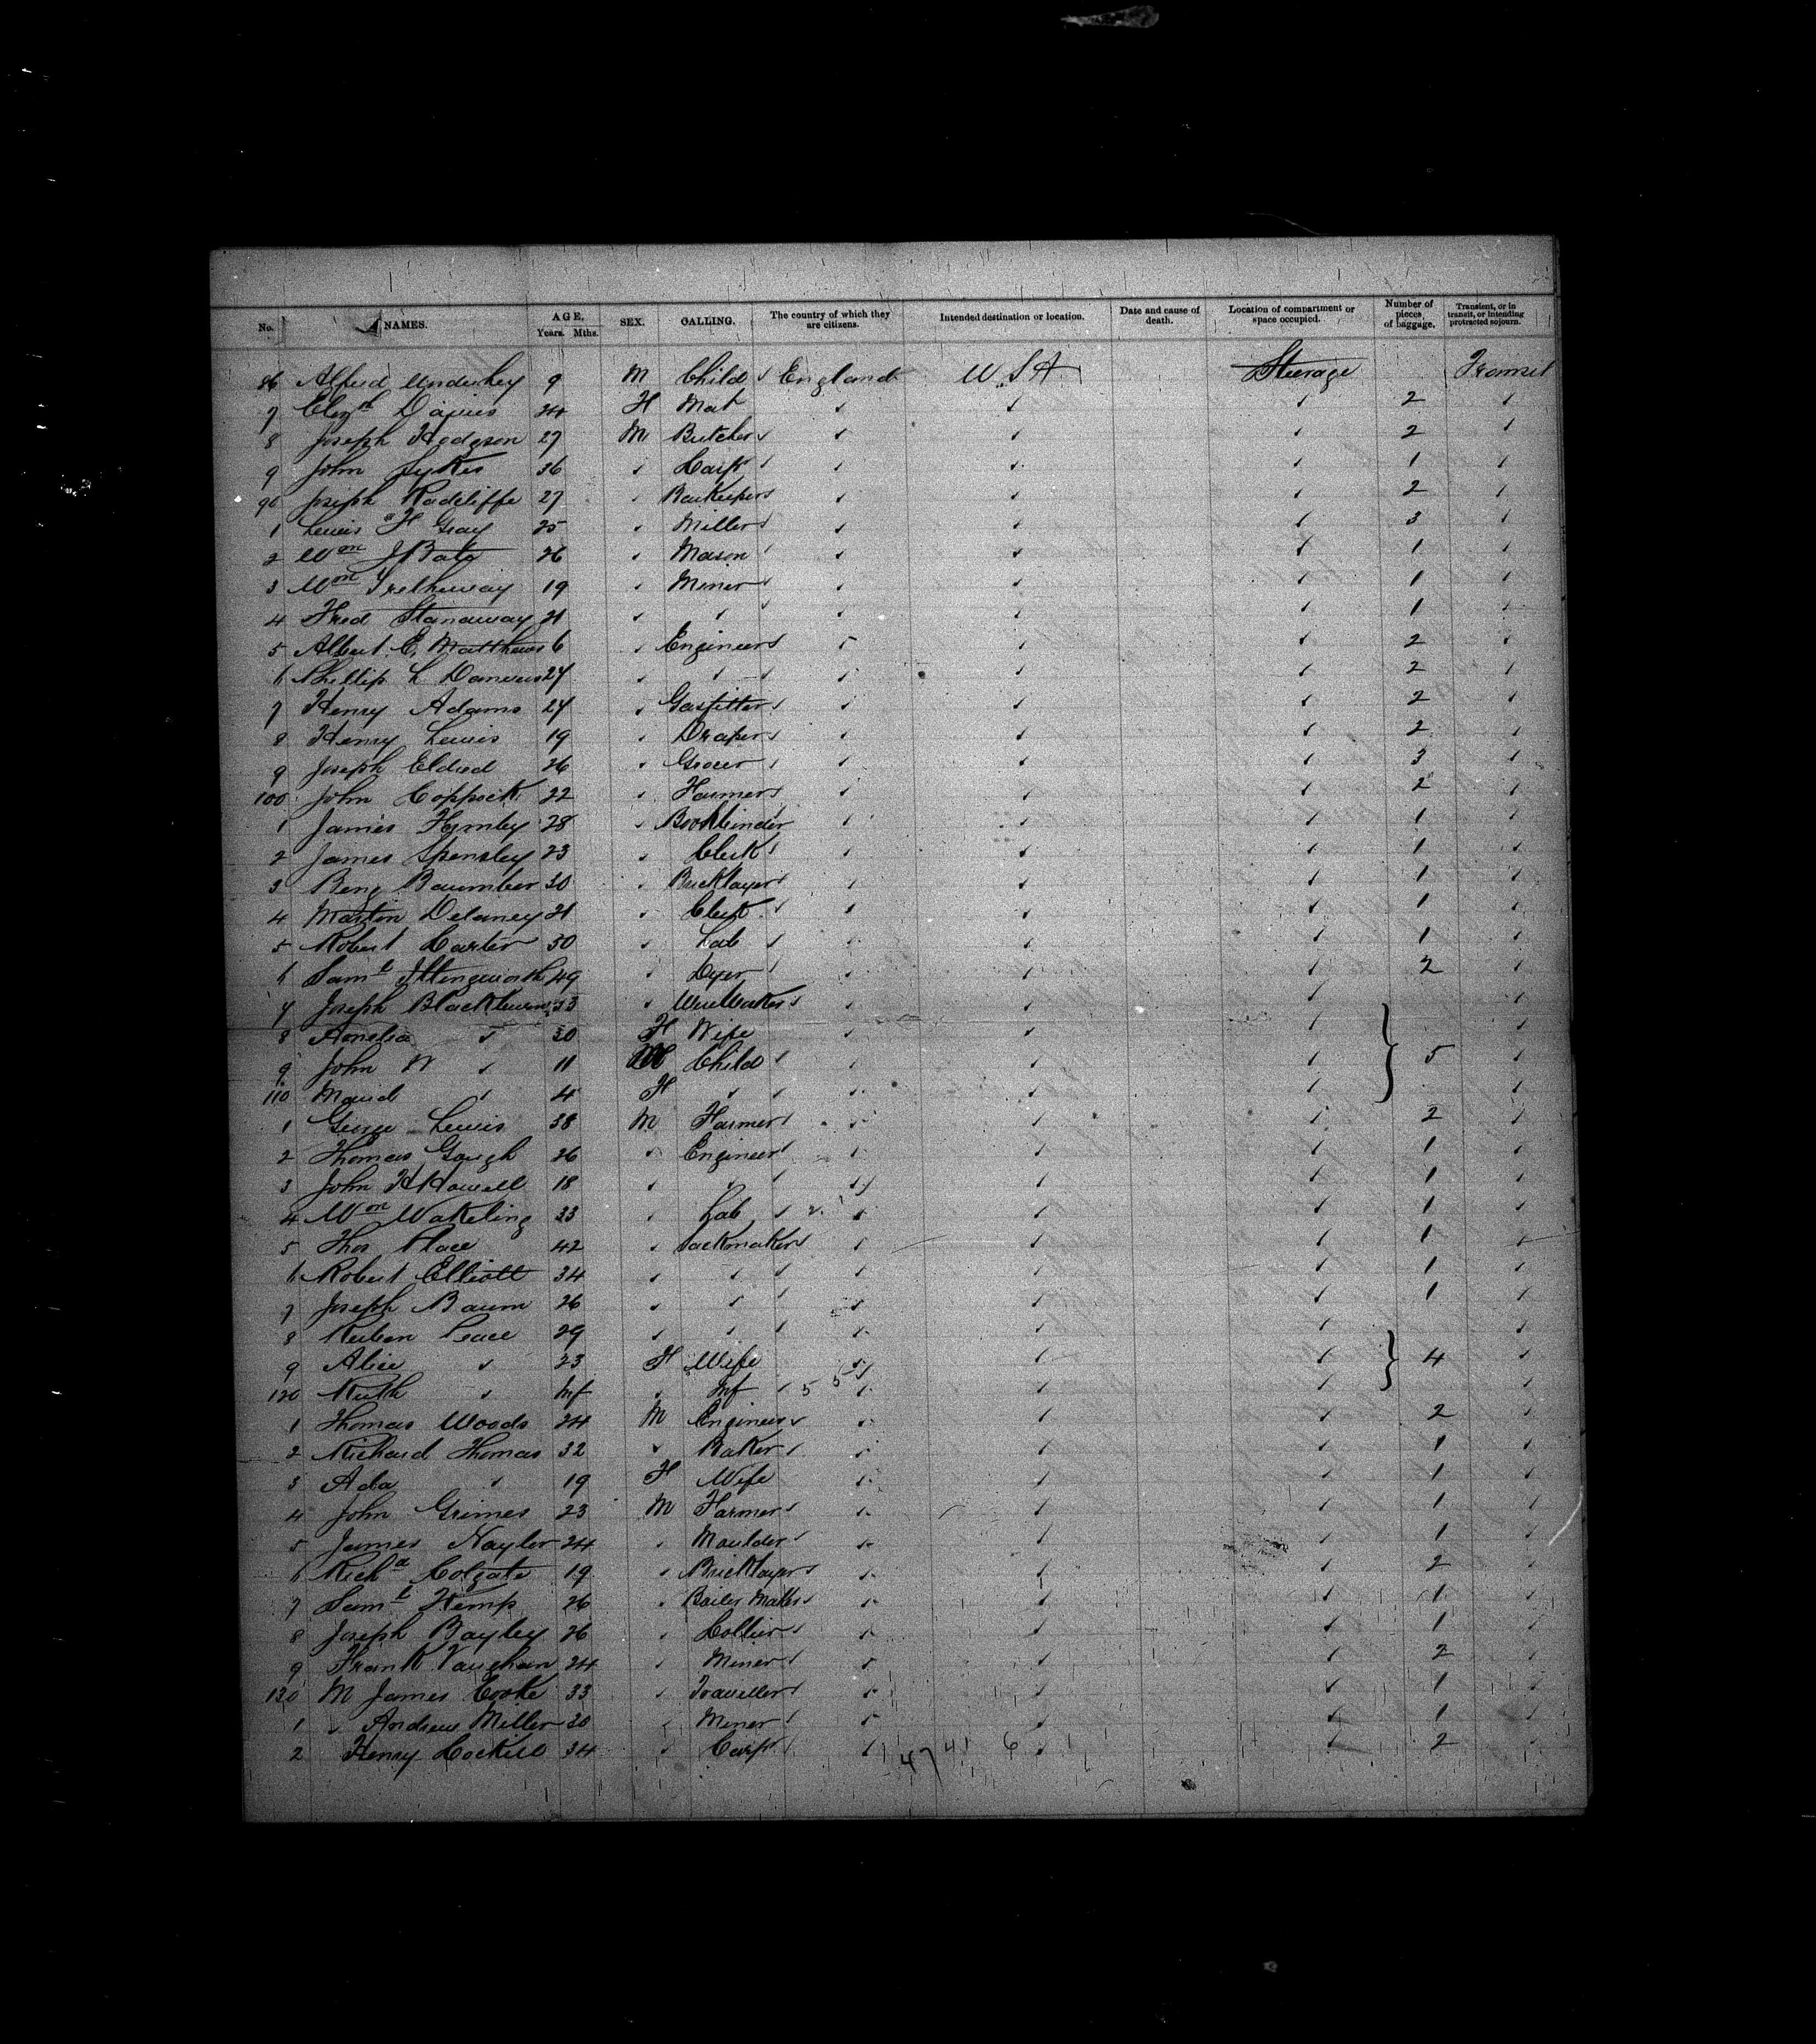 No. NAMES. AGE. Years. Mths. SEX. CALLING. The country of which they are citizens. Intended destination or location. Date and cause of death. Location of compartment or space occupied. Number of pieces of baggage. Transient, or in transit, or intending protracted sojourn.
86 Alfred 9 M Child ✓ England U.S.A Steerage Transit
7 Elizth 24 F Mat ✓ ✓ ✓ 2 ✓
8 Joseph Hodgson 27 M Butcher ✓ ✓ ✓ ✓ 2 ✓
9 John Sykes 36 ✓ Carpr ✓ ✓ ✓ ✓ 1 ✓
90 Joseph Radcliffe 27 ✓ Barkeeper ✓ ✓ ✓ ✓ 2 ✓
1 Lewis H Gray 25 ✓ Miller ✓ ✓ ✓ ✓ 3 ✓
2 Wm J Bate 26 ✓ Mason ✓ ✓ ✓ ✓ 1 ✓
3 Wm Tretheway 19 ✓ Miner ✓ ✓ ✓ ✓ 1 ✓
4 Fred Stanaway 21 ✓ ✓ ✓ ✓ ✓ ✓ 1 ✓
5 Albert E. Matthews 6 ✓ Engineer ✓ ✓ ✓ ✓ 2 ✓
6 Phillip L 24 ✓ ✓ ✓ ✓ ✓ ✓ 2 ✓
7 Henry Adams 24 ✓ Gasfitter ✓ ✓ ✓ ✓ 2 ✓
8 Henry Lewis 19 ✓ Draper ✓ ✓ ✓ ✓ 2 ✓
9 Joseph Eldred 26 ✓ Grocer ✓ ✓ ✓ ✓ 3 ✓
100 John Coppock 22 ✓ Farmer ✓ ✓ ✓ ✓ 2 ✓
1 James 28 ✓ Bookbinder ✓ ✓ ✓ 1 ✓
2 James Spensley 23 ✓ Clerk ✓ ✓ ✓ ✓ 1 ✓
3 Benj Baumber 30 ✓ Bricklayer ✓ ✓ ✓ ✓ 1 ✓
4 Martin Delaney 21 ✓ Clerk ✓ ✓ ✓ ✓ 1 ✓
5 Robert Carter 50 ✓ Lab ✓ ✓ ✓ ✓ 1 ✓
6 Saml Illingworth 49 ✓ Dyer ✓ ✓ ✓ ✓ 2 ✓
7 Joseph Blackburn 33 ✓ ✓ ✓ ✓ ✓ ✓
8 Amelia ✓ 30 F Wife ✓ ✓ ✓ ✓
9 John W ✓ 11 M Child ✓ ✓ ✓ ✓ 5 ✓
110 Maud ✓ 4 F ✓ ✓ ✓ ✓ ✓ ✓
1 George Lewis 38 M Farmer ✓ ✓ ✓ ✓ 2 ✓
2 Thomas Gough 26 ✓ Engineer ✓ ✓ ✓ ✓ 1 ✓
3 John H Howell 18 ✓ ✓ ✓ ✓ ✓ ✓ 1 ✓
4 Wm Wakeling 33 ✓ Lab ✓ ✓ ✓ ✓ 1 ✓
5 Thos Place 42 ✓ Sackmaker ✓ ✓ ✓ ✓ 1 ✓
6 Robert Elliott 34 ✓ ✓ ✓ ✓ ✓ ✓ 1 ✓
7 Joseph Baum 26 ✓ ✓ ✓ ✓ ✓ ✓ 1 ✓
8 Reuben Peace 29 ✓ ✓ ✓ ✓ ✓ ✓ ✓
9 Alice ✓ 23 F Wife ✓ ✓ ✓ 4 ✓
120 Ruth ✓ Inf ✓ Inf ✓ 5 5 ✓ ✓ ✓ ✓
1 Thomas Woods 24 M Engineer ✓ ✓ ✓ ✓ 2 ✓
2 Richard Thomas 32 ✓ Baker ✓ ✓ ✓ ✓ 1 ✓
3 Ada ✓ 19 F Wife ✓ ✓ ✓ 1 ✓
4 John Grimes 23 M Farmer ✓ ✓ ✓ ✓ 1 ✓
5 James Naylor 24 ✓ Moulder ✓ ✓ ✓ ✓ 1 ✓
6 Richd Colgate 19 ✓ Bricklayer ✓ ✓ ✓ ✓ 2 ✓
7 Saml Kemp 26 ✓ Boiler Maker ✓ ✓ ✓ ✓ 1 ✓
8 Joseph Bayley 26 ✓ Collier ✓ ✓ ✓ ✓ 1 ✓
9 Frank Vaughan 24 ✓ Miner ✓ ✓ ✓ ✓ 2 ✓
130 M James Cooke 33 ✓ Traveller ✓ ✓ ✓ ✓ 1 ✓
1 ✓ Andrew Miller 30 ✓ Miner ✓ ✓ ✓ ✓ 1 ✓
2 Henry Cockill 34 ✓ Carpr ✓ ✓ ✓ ✓ 2 ✓
47 41 6